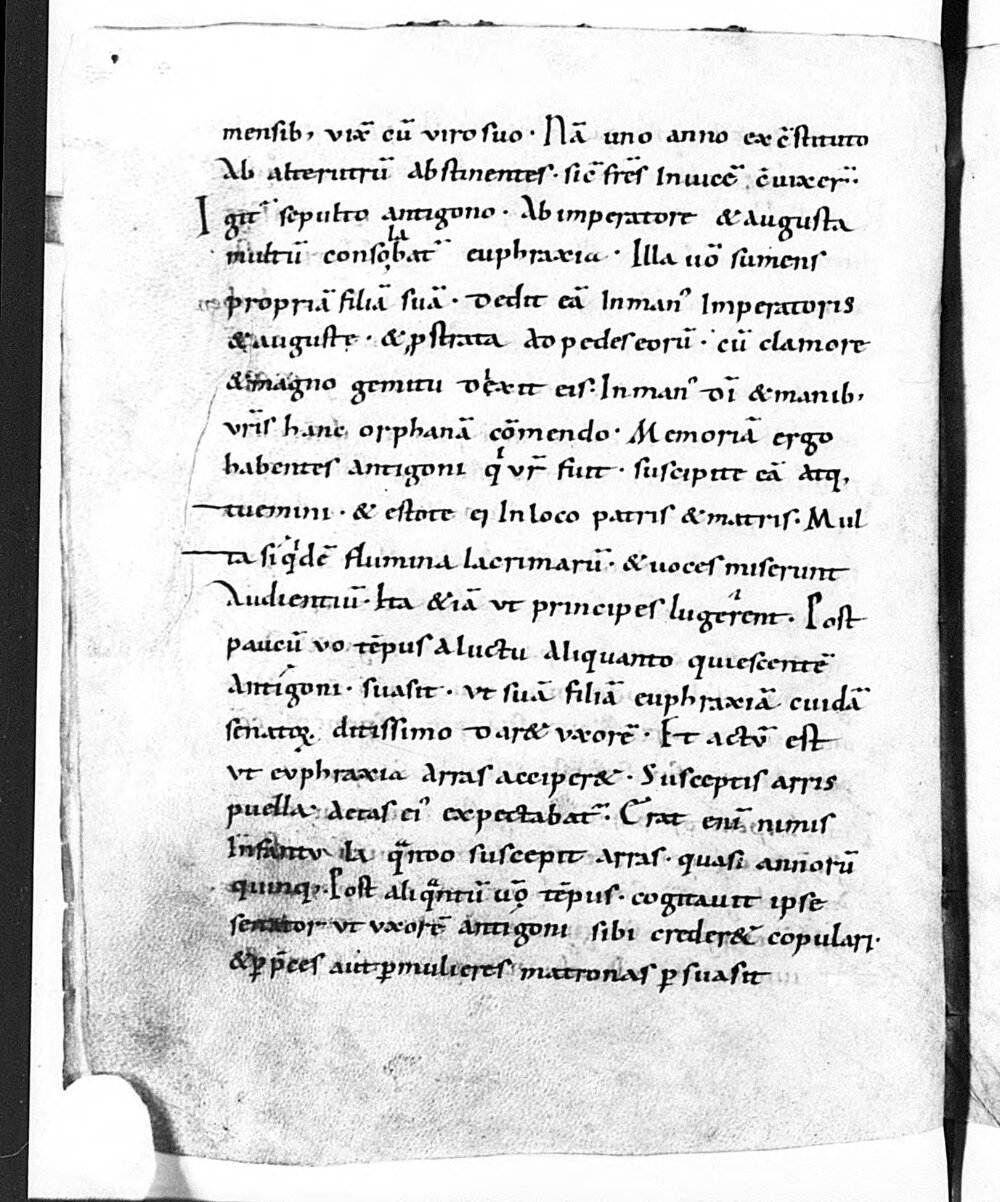 mensib; vix̄ cū viro suo· Nā uno anno ex c̄stituto
Ab alterutrū Abstinentes· sic̄ fr̄es Inuicē c̄uixer̄·
Igit̄ sepulto antigono· Ab imperatore & augusta
multū consolabat̄ euphraxia· Illa uō sumens
propriā filiā suā· Dedit eā In man᾽ Imperatoris
& auguste· & ꝓstrata Ad pedes eorū· cū clamore
& magno gemitu dixit eis· In man᾽ dī & manib;
vr̄is hanc orphanā cōmendo· Memoriā ergo
habentes Antigoni qi vr̄ fuit· suscipite eā Atq;
tuemini· & estote ei In loco patris & matris· Mul
ta siqidē flumina lacrimarū· & uoces miserunt
Audientiū· Ita & iā vt principes lugerent· Post
paucū vo tēpus A luctu Aliquanto quiescentē
Antigoni· suasit· vt suā filiā euphraxiā cuidā
senatoꝝ ditissimo dar& vxorē· Et actū est
vt euphraxia Arras acciper&· Susceptis arris
puella· Aetas ei᾽ expectabat̄· Erat enī nimis
Infantula qn̄do suscepit arras· quasi annorū
quinq;· Post aliqn̄tū uō tēpus· cogitauit ipse
senator vt vxorē antigoni sibi creder& copulari·
& ꝑ p̄ces aut ꝑ mulieres matronas ꝑsuasit